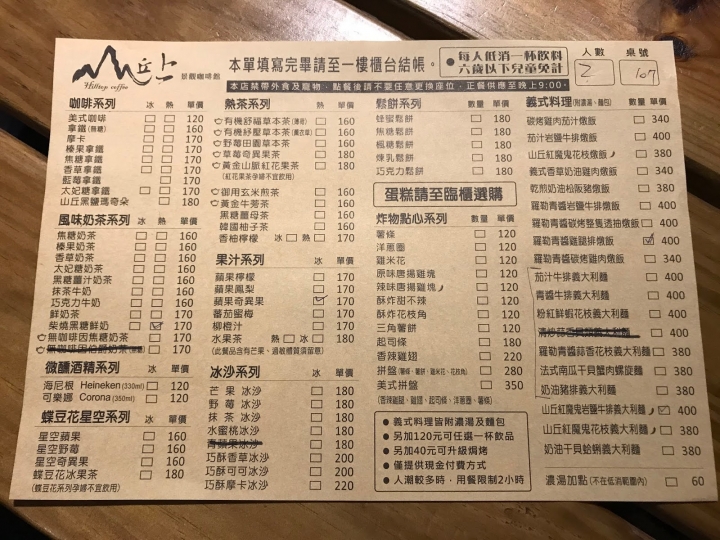 丘上
Hilltop coffee
景觀咖啡館
本單填寫完畢請至一樓櫃台結帳。
●每人低消一杯飲料
六歲以下兒童免計
人數
2
桌號
107
本店禁帶外食及寵物。點餐後請不要任意更換座位,正餐供應至晚上9:00。
咖啡系列 冰 熱 單價
美式咖啡 120
拿鐵(無糖) 150
摩卡 170
榛果拿鐵 170
焦糖拿鐵 170
香草拿鐵 170
藍莓拿鐵 170
太妃糖拿鐵 170
山丘黑鹽瑪奇朵 180
風味奶茶系列 冰 熱 單價
焦糖奶茶 160
榛果奶茶 160
香草奶茶 160
太妃糖奶茶 160
黑糖薑汁奶茶 160
抹茶牛奶 160
巧克力牛奶 160
鮮奶茶 170
柴燒黑糖鮮奶 170
無咖啡因焦糖奶茶 170
無咖啡因伯爵奶茶 170
微醺酒精系列 單價
海尼根 Heineken(330ml) 120
可樂娜 Corona(350ml) 120
蝶豆花星空系列 冰 單價
星空蘋果 160
星空野莓 160
星空奇異果 160
蝶豆花冰果茶 180
(蝶豆花系列孕婦不宜飲用)
熱茶系列 熱 單價
有機舒福草本茶 160
有機紓壓草本茶(薰衣草) 160
野莓田園草本茶 160
草莓奇異果茶 160
黃金山脈紅花果茶 160
(紅花果茶孕婦不宜飲用)
御用玄米煎茶 160
黃金牛蒡茶 160
黑糖薑母茶 160
韓國柚子茶 160
香柚檸檬 冰 熱 170
果汁系列 冰 單價
蘋果檸檬 170
蘋果鳳梨 170
蘋果奇異果 170
蕃茄蜜梅 170
柳橙汁 170
水果茶 熱 冰 180
(此餐品含有芒果、過敏體質須留意)
冰沙系列 冰 單價
芒果冰沙 180
野莓冰沙 180
抹茶冰沙 180
水蜜桃冰沙 180
青蘋果冰沙 180
巧酥香草冰沙 200
巧酥可可冰沙 200
巧酥摩卡冰沙 220
鬆餅系列 數量 單價
蜂蜜鬆餅 180
焦糖鬆餅 180
楓糖鬆餅 180
煉乳鬆餅 180
巧克力鬆餅 180
蛋糕請至臨櫃選購
炸物點心系列 數量 單價
薯條 120
洋蔥圈 120
雞米花 120
原味唐揚雞塊 120
辣味唐揚雞塊 120
酥炸甜不辣 120
酥炸花枝角 120
三角薯餅 120
起司條 180
香辣雞翅 220
拼盤(薯條、薯餅、雞米花、花枝角) 280
美式拼盤 350
(香辣雞腿、雞翅、起司條、洋蔥圈、薯條)
●義式料理皆附濃湯及麵包
●另加120元可任選一杯飲品
●另加40元可升級焗烤
●僅提供現金付費方式
●人潮較多時,用餐限制2小時
義式料理(附濃湯、麵包) 數量 單價
碳烤雞肉茄汁燉飯 340
茄汁岩鹽牛排燉飯 400
山丘紅魔鬼花枝燉飯 380
義式香草奶油雞肉燉飯 340
乾煎奶油松阪豬燉飯 380
羅勒青醬岩鹽牛排燉飯 400
羅勒青醬碳烤整隻透抽燉飯 400
羅勒青醬雞腿排燉飯 400
羅勒青醬碳烤雞肉燉飯 380
茄汁牛排義大利麵 400
青醬牛排義大利麵 400
粉紅鮮蝦花枝義大利麵 400
400
羅勒青醬蒜香花枝義大利麵 380
法式南瓜干貝蟹肉螺旋麵 380
奶油豬排義大利麵 380
山丘紅魔鬼岩鹽牛排義大利麵 400
山丘紅魔鬼花枝義大利麵 380
奶油干貝蛤蜊義大利麵 380
濃湯加點(不在低消範圍內) 60